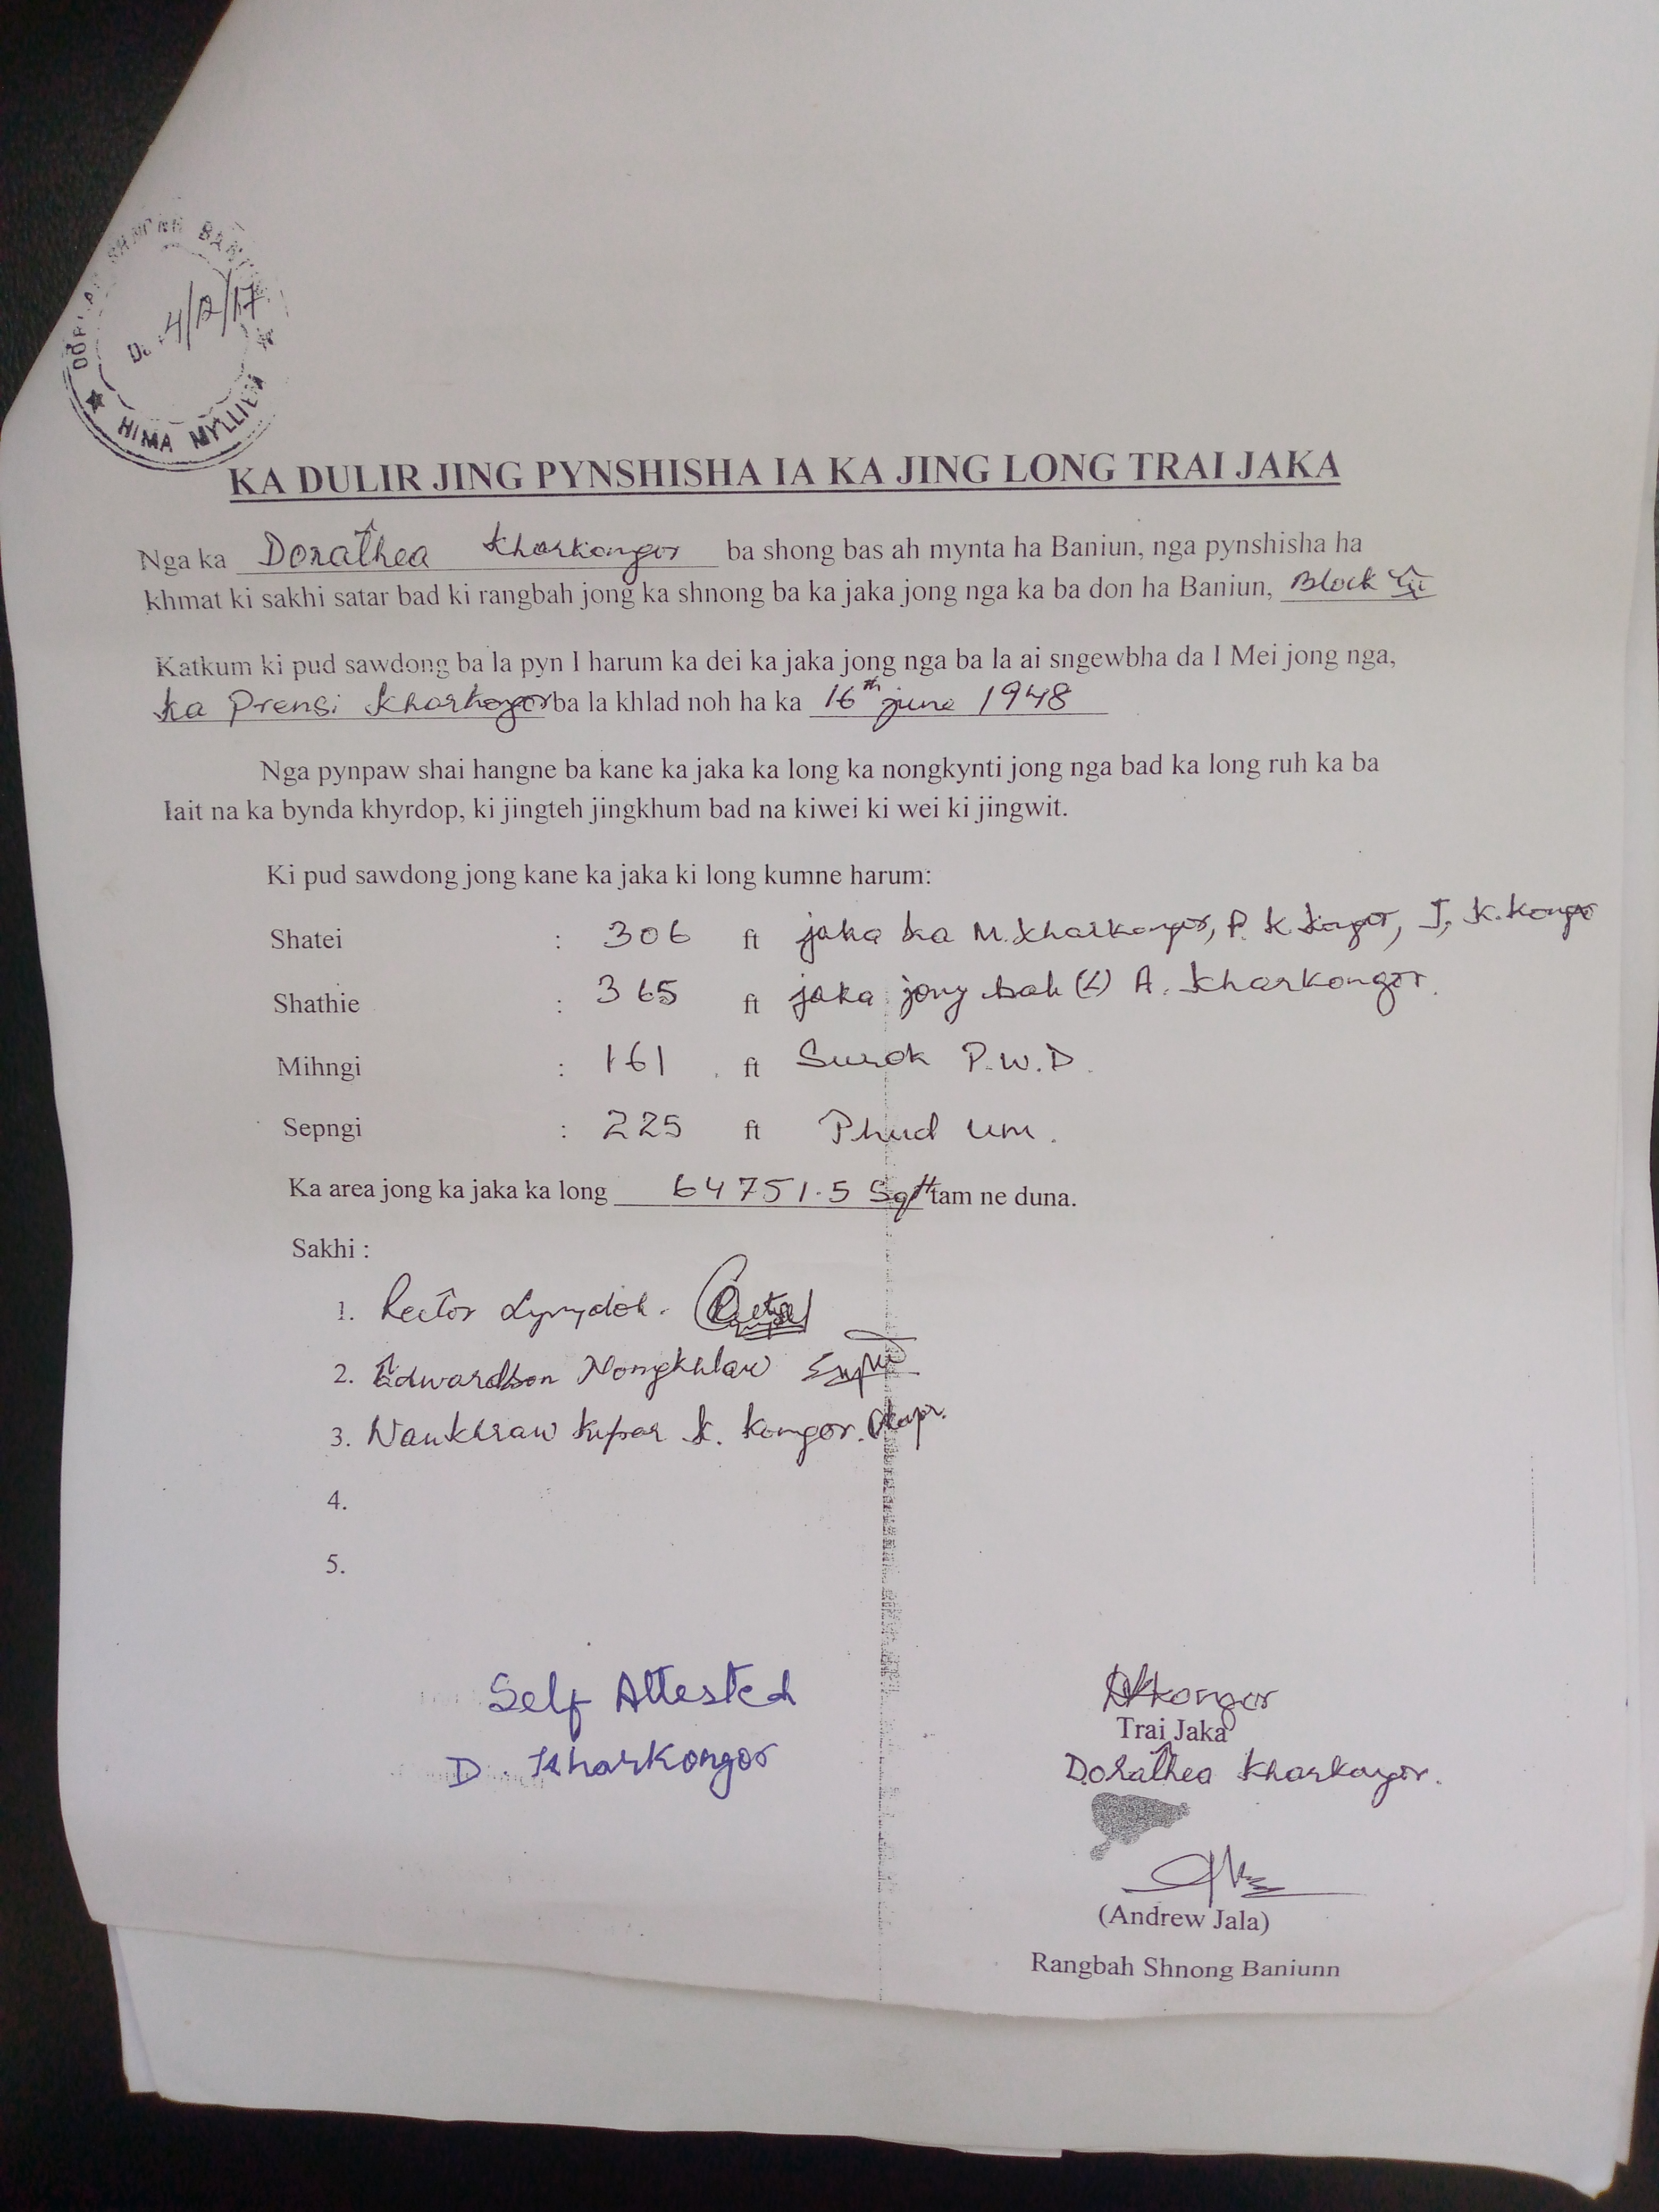 Da 4/12/17
HIMA MYLLIEM
KA DULIR JING PYNSHISHA IA KA JING LONG TRAI JAKA
Nga ka Dorathea Kharkongor ba shong bas ah mynta ha Baniun, nga pynshisha ha
khmat ki sakhi satar bad ki rangbah jong ka shnong ba ka jaka jong nga ka ba don ha Baniun, Block
Katkum ki pud sawdong ba la pyn I harum ka dei ka jaka jong nga ba la ai sngewbha da I Mei jong nga,
ka Prensi Kharkongor ba la khlad noh ha ka 16th june 1948
Nga pynpaw shai hangne ba kane ka jaka ka long ka nongkynti jong nga bad ka long ruh ka ba
lait na ka bynda khyrdop, ki jingteh jingkhum bad na kiwei ki wei ki jingwit.
Ki pud sawdong jong kane ka jaka ki long kumne harum:
Shatei : 306 ft jaka ka M. Kharkongor, P. K. Kongor, J. K. Kongor
Shathie : 365 ft jaka jong bah (L) A. Kharkongor.
Mihngi : 161 ft Surok P.W.D.
Sepngi : 225 ft Phud Um.
Ka area jong ka jaka ka long 64751.5 Sqft tam ne duna.
Sakhi :
1. Rector Lyngdoh.
2. Edwardson Nongkhlaw
3. Nankhraw Kupar K. Kongor.
4.
5.
Self Attested
D. Kharkongor
DKkongor
Trai Jaka
Dorathea Kharkongor.
(Andrew Jala)
Rangbah Shnong Baniunn